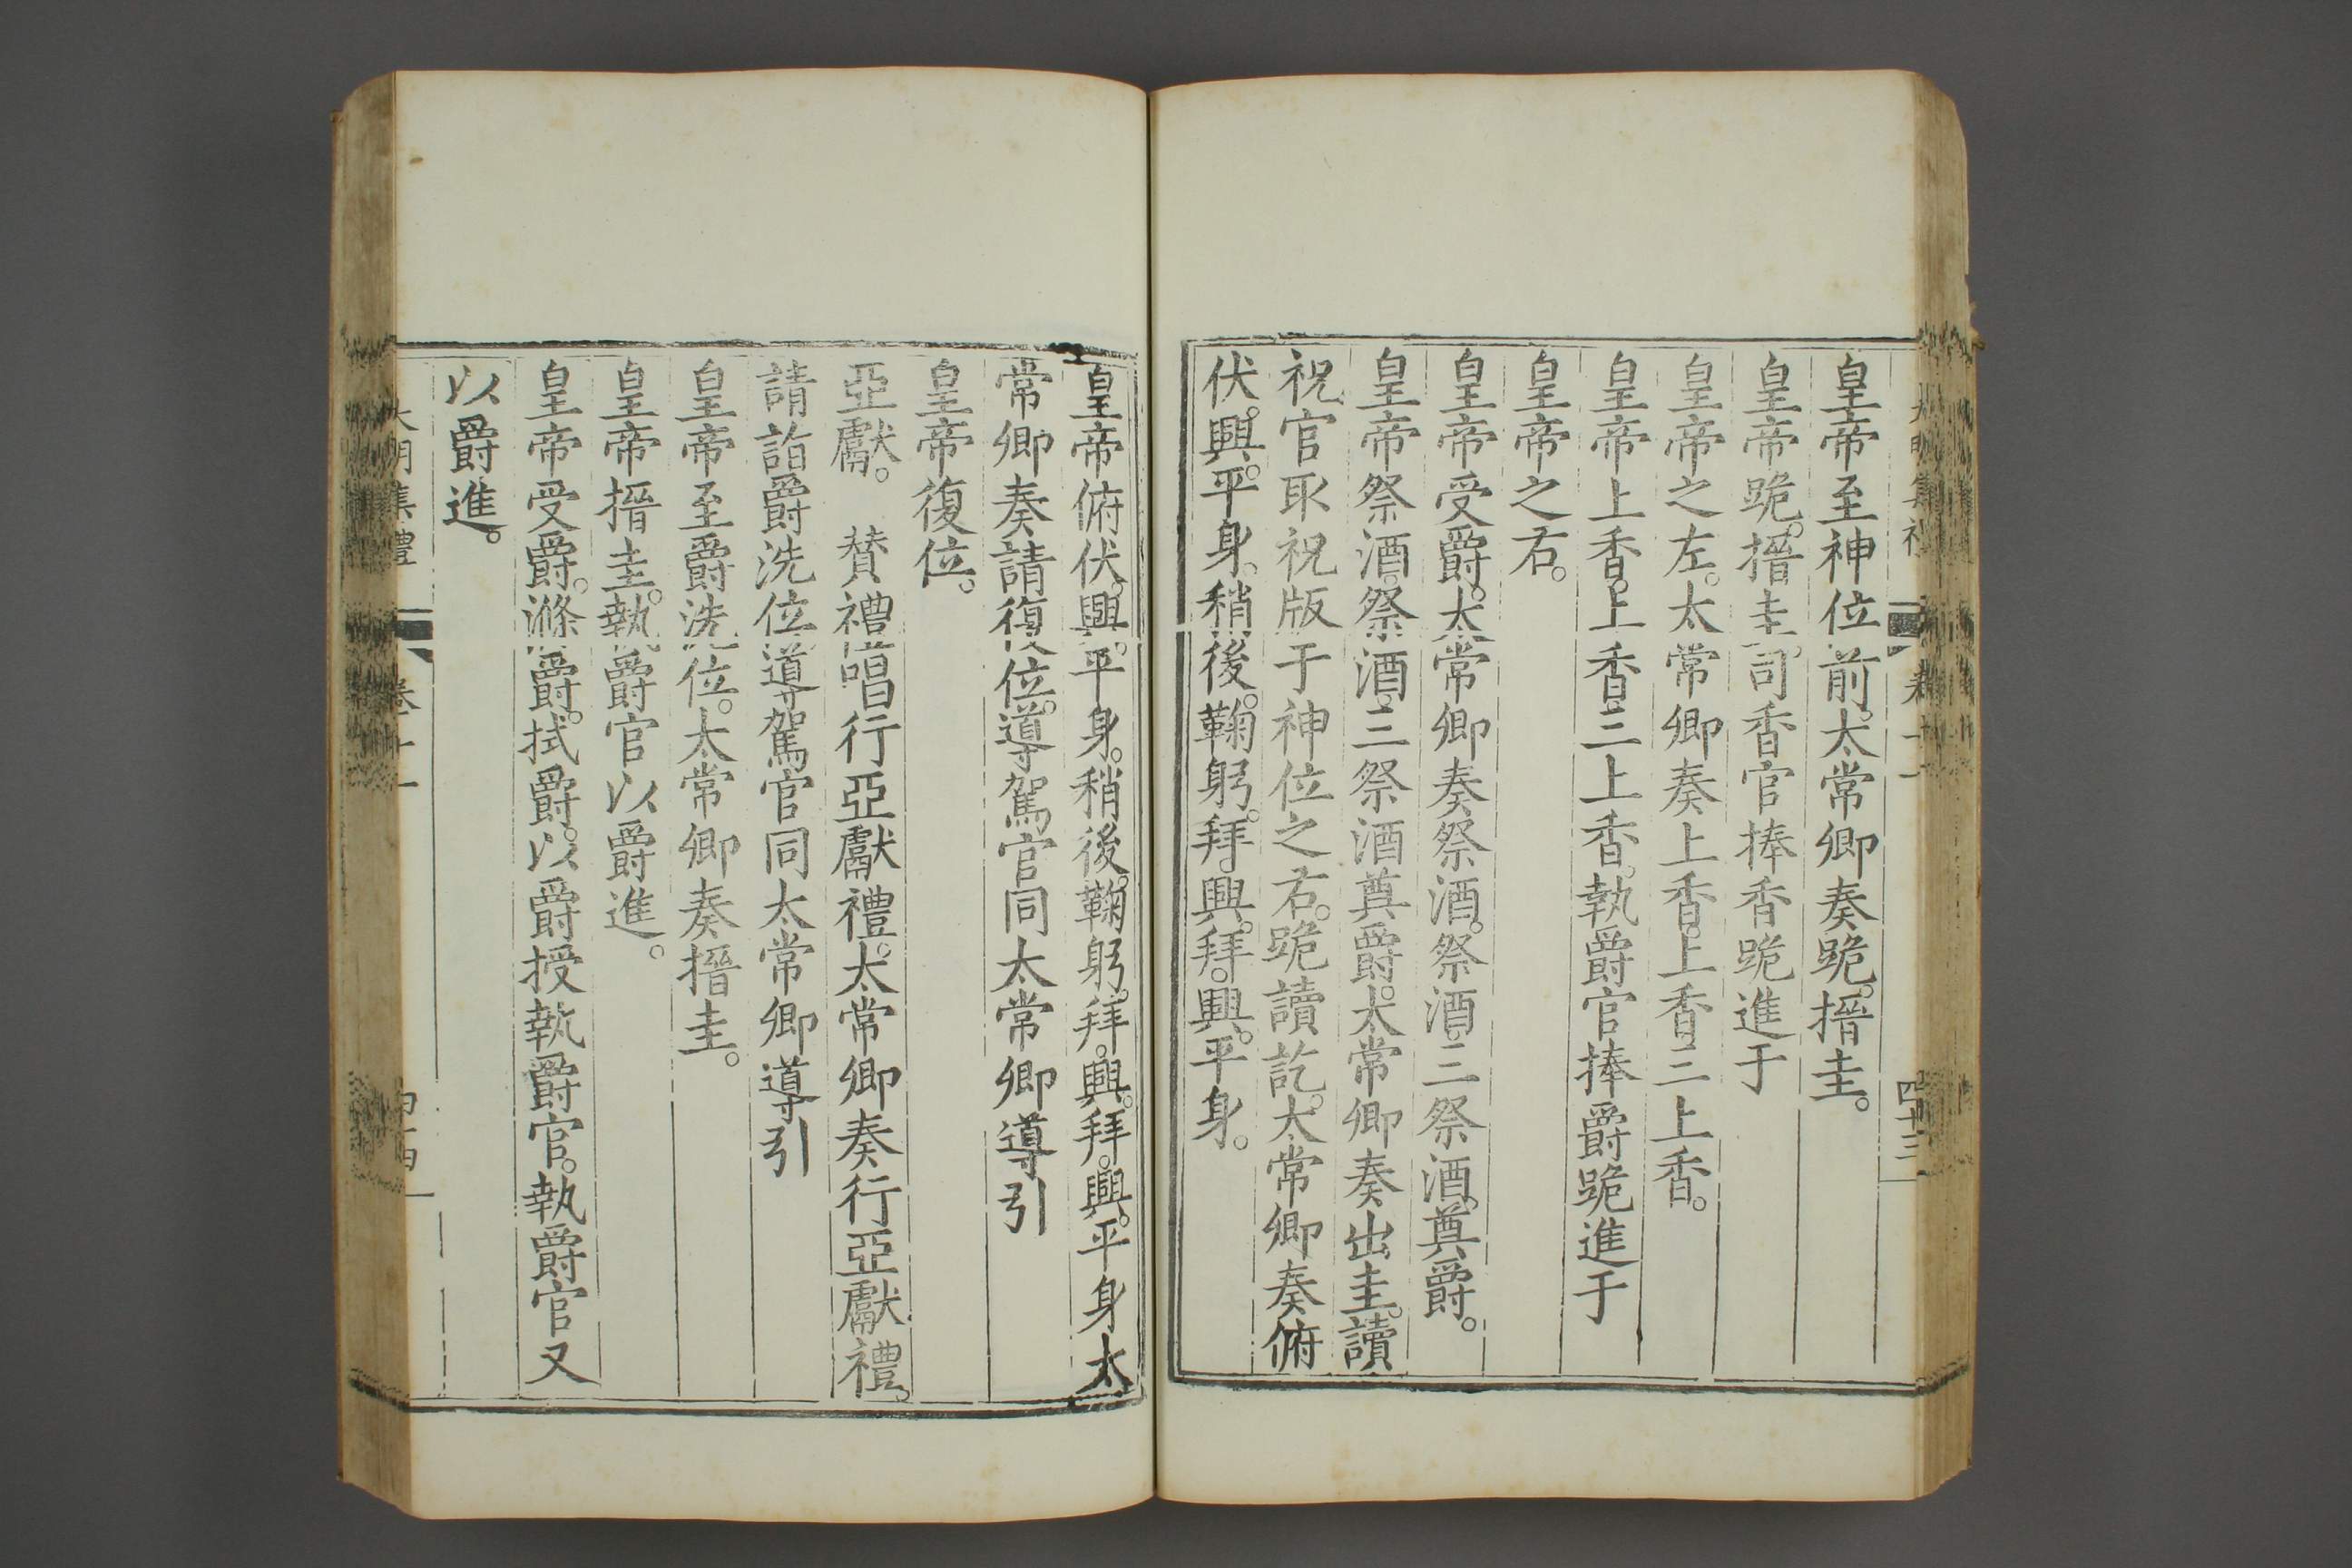 皇帝至神位前。太常卿奏跪。搢圭。
皇帝跪。搢圭。司香官捧香跪進于
皇帝之左。太常卿奏上香。上香。三上香。
皇帝上香。上香。三上香。執爵官捧爵跪進于
皇帝之右。
皇帝受爵。太常卿奏祭酒。祭酒。三祭酒。奠爵。
皇帝祭酒。祭酒。三祭酒奠爵。太常卿奏出圭。讀
祝官取祝版于神位之右。跪讀訖。太常卿奏俯
伏。興。平身。稍後。鞠躬。拜。興。拜。興。平身。
皇帝俯伏。興。平身。稍後。鞠躬。拜。興。拜。興。平身太
常卿奏請復位。導駕官同太常卿導引
皇帝復位。
亞獻。 贊禮唱行亞獻禮。太常卿奏行亞獻禮。
請詣爵洗位導駕官同太常卿導引
皇帝至爵洗位。太常卿奏搢圭。
皇帝搢圭。執爵官以爵進。
皇帝受爵。滌爵。拭爵。以爵授執爵官。執爵官又
以爵進。
大明集禮 卷十一